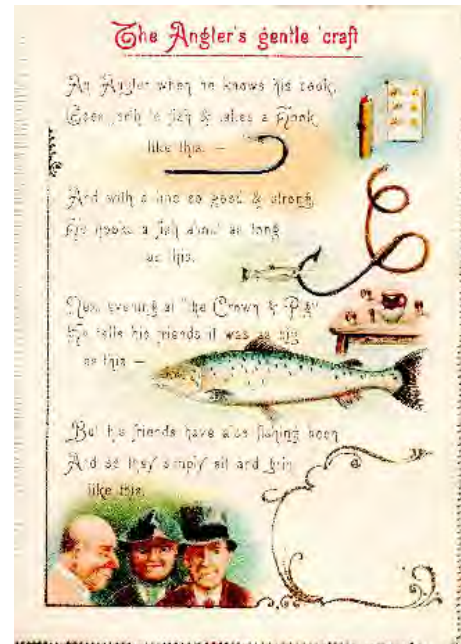 The Angler's gentle 'craft
An Angler when he knows his book,
Goes forth to fish & takes a Hook
like this. —
And with a line so good & strong
He hooks a fish about as long
as this.
Next evening at "the Crown & Pig"
He tells his friends it was as big
as this —
But his friends have also fishing been
And so they simply sit and grin
like this.